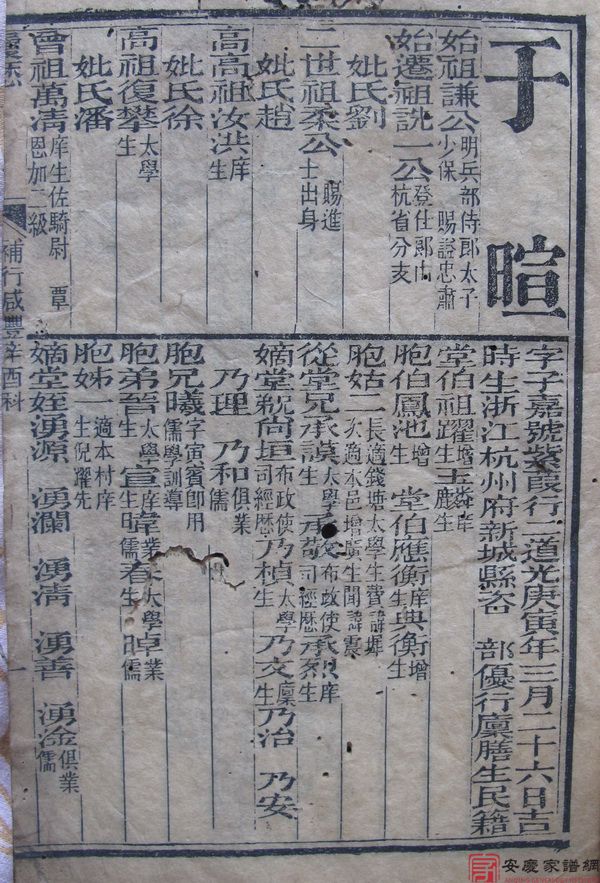 于暄
始祖謙公明兵部侍郎太子少保賜諡忠肅
始遷祖說一公登仕郎由杭省分支
妣氏劉
二世祖柔公賜進士出身
妣氏趙
高高祖汝洪庠生
妣氏徐
高祖復攀太學生
妣氏潘
曾祖萬清庠生佐騎尉覃恩加二級
字子嘉號紫霞行二道光庚寅年三月二十六日吉
時生浙江杭州府新城縣客部優行廩膳生民籍
堂伯祖躍增生玉麟庠生
胞伯鳳池增生堂伯應衡庠生典衡增生
胞姑二長適錢塘太學生費諱墀次適本邑增廣生聞諱震
從堂兄承謨太學生承敬布政使司經歷承烈庠生
嫡堂姪尚垣布政使司經歷乃楨太學生乃文廩生乃治乃安
乃理乃和俱業儒
胞兄曦字寅賓即用儒學訓導
胞弟晉太學生宣庠生暐業儒春太學生晫業儒
胞姊一適本村庠生倪躍先
嫡堂姪湧源湧瀾湧清湧善湧淦俱業儒
補行咸豐辛酉科
一
安慶家譜網